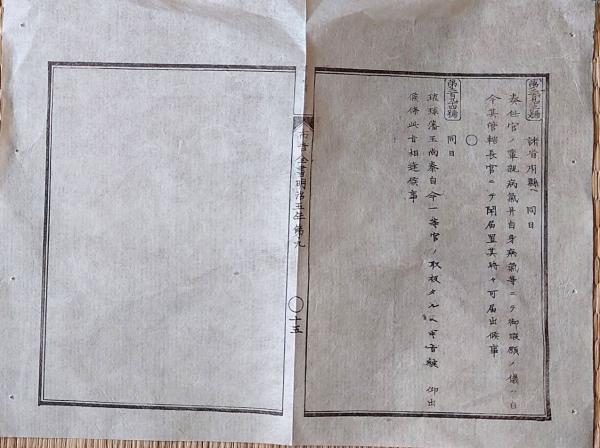 第二百九十三號 諸省府縣ヘ 同日
奏任官ノ輩親病氣幷自身病氣等ニテ御暇願ノ儀ハ自
今其管轄長官ニテ聞届置其時々可届出候事
○
第二百九十四號 同日
琉球藩王尚泰自今一等官ノ取扱タルヘキ旨被 仰出
候條此旨相達候事
布告全書明治五年第九
○十五